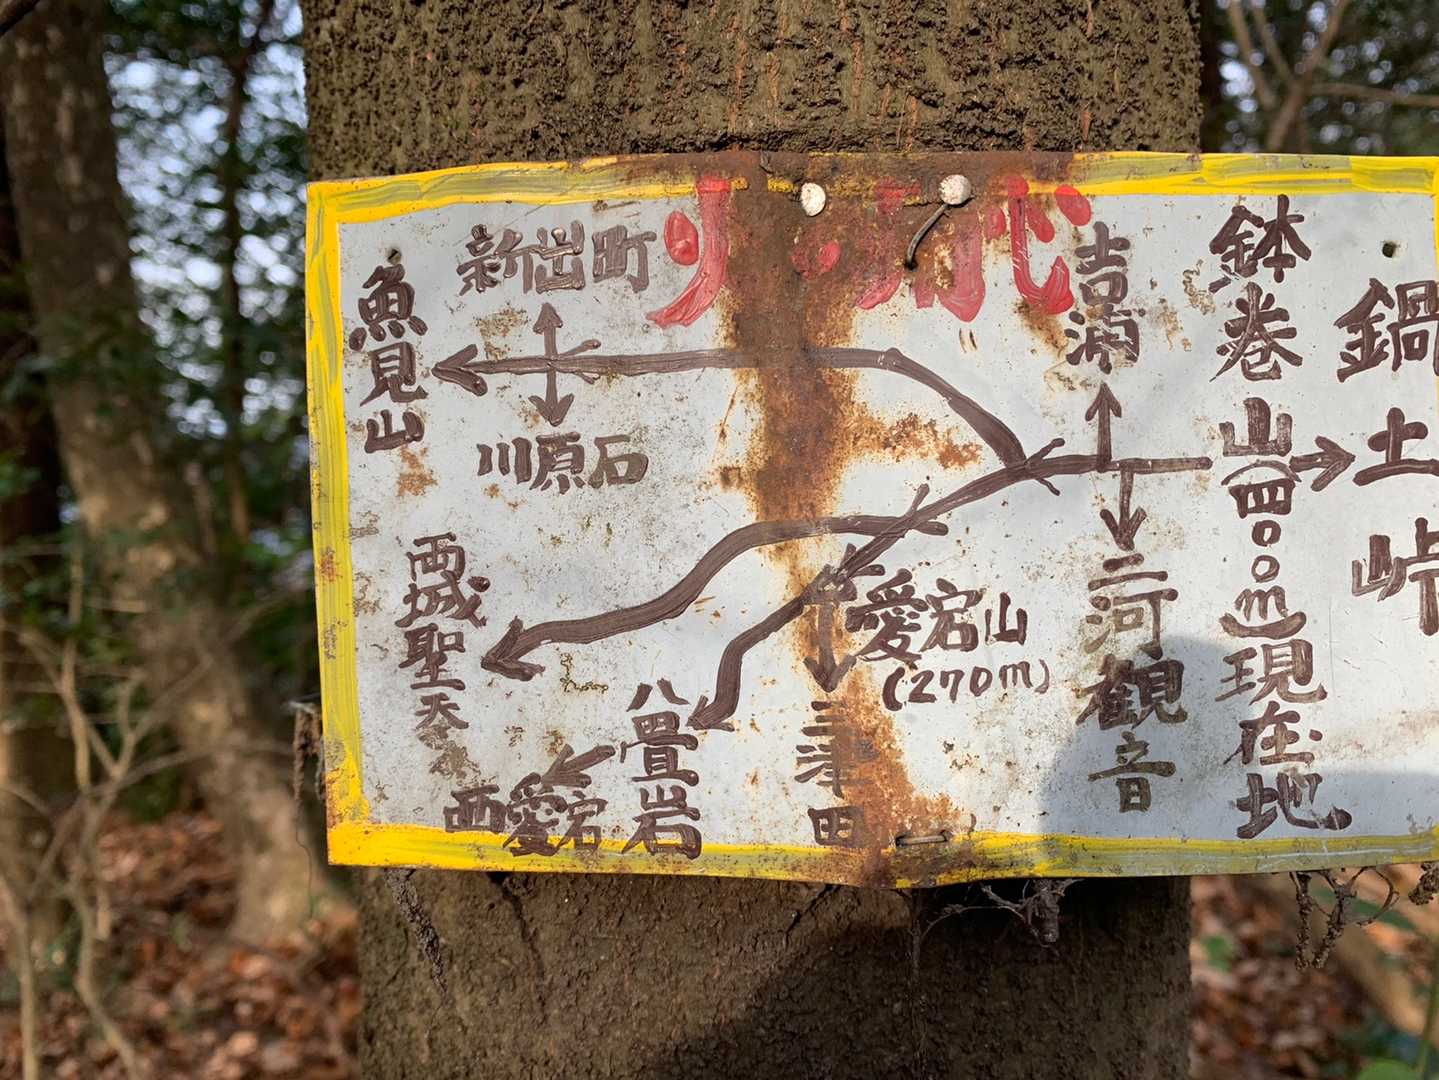 鍋土峠
鉢巻山(四〇〇m)現在地
吉浦
二河観音
火の用心
新出町
魚見山
川原石
愛宕山
(270m)
三津田
八畳岩
西愛宕
両城聖天